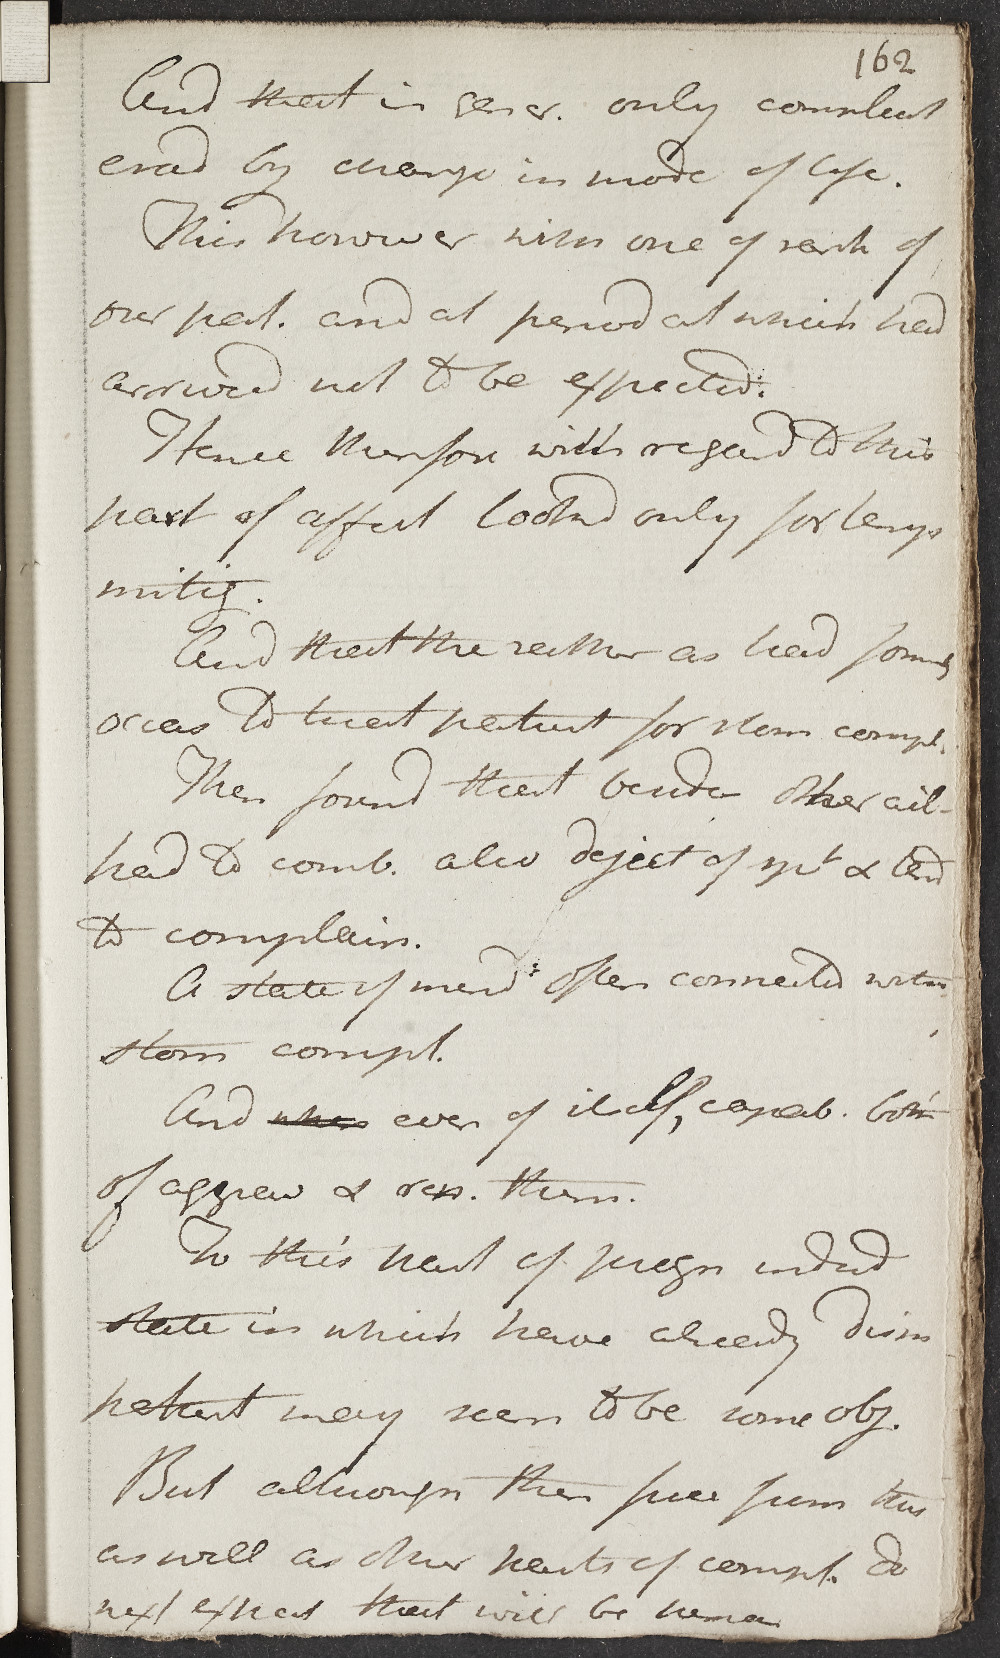 162
And that in gener. only compleat
erad by change in mode of life.
This however with one of rank of
our pat. and at period at which had
arrived not to be expected.
Hence therefore with regard to this
part of affect looked only for temp
mitig.
And that the rather as had formerly
occas to treat patient for stom compl.
Then found that beside other ail-
had to comb. also deject of spt & tend
to complain.
A state of mind often connected with
stom compl.
And when even of itself, capab. both
of aggrav & ren. them.
To this part of progn indeed
state in which have already dism
patient may seem to be some obj.
But although then free from this
as well as other parts of compl. do
not expect that will be perma